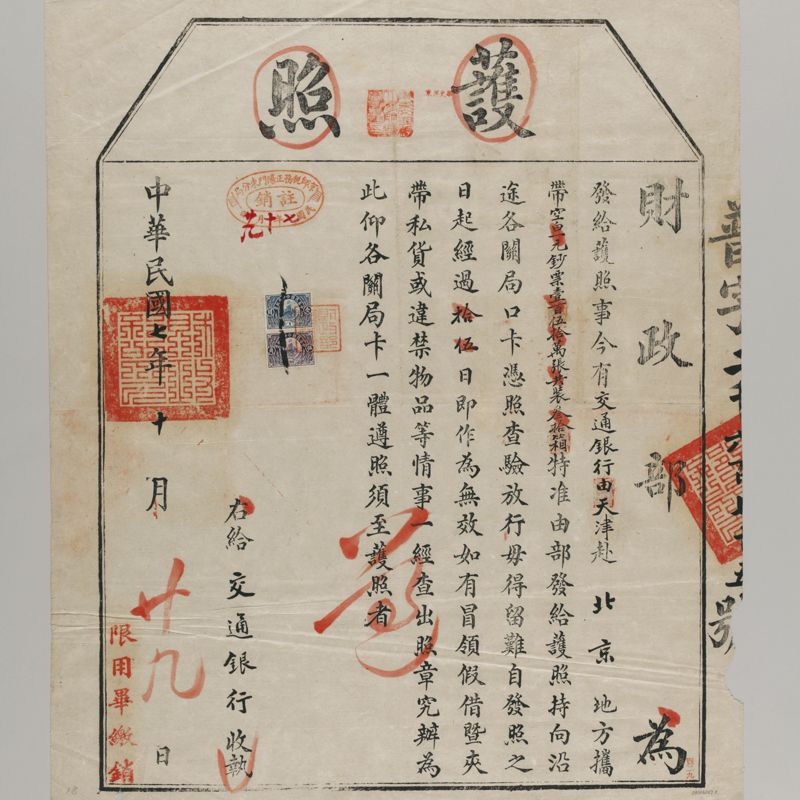 護照
財政部為
發給護照事今有交通銀行由天津赴北京地方攜
帶空白一元鈔票壹百伍拾萬張共裝叁拾箱特准由部發給護照持向沿
途各關局口卡憑照查驗放行毋得留難自發照之
日起經過拾伍日即作為無效如有冒領假借暨夾
帶私貨或違禁物品等情事一經查出照章究辦為
此仰各關局卡一體遵照須至護照者
遵
註銷
右給交通銀行收執
中華民國七年十月廿九日
限用畢繳銷